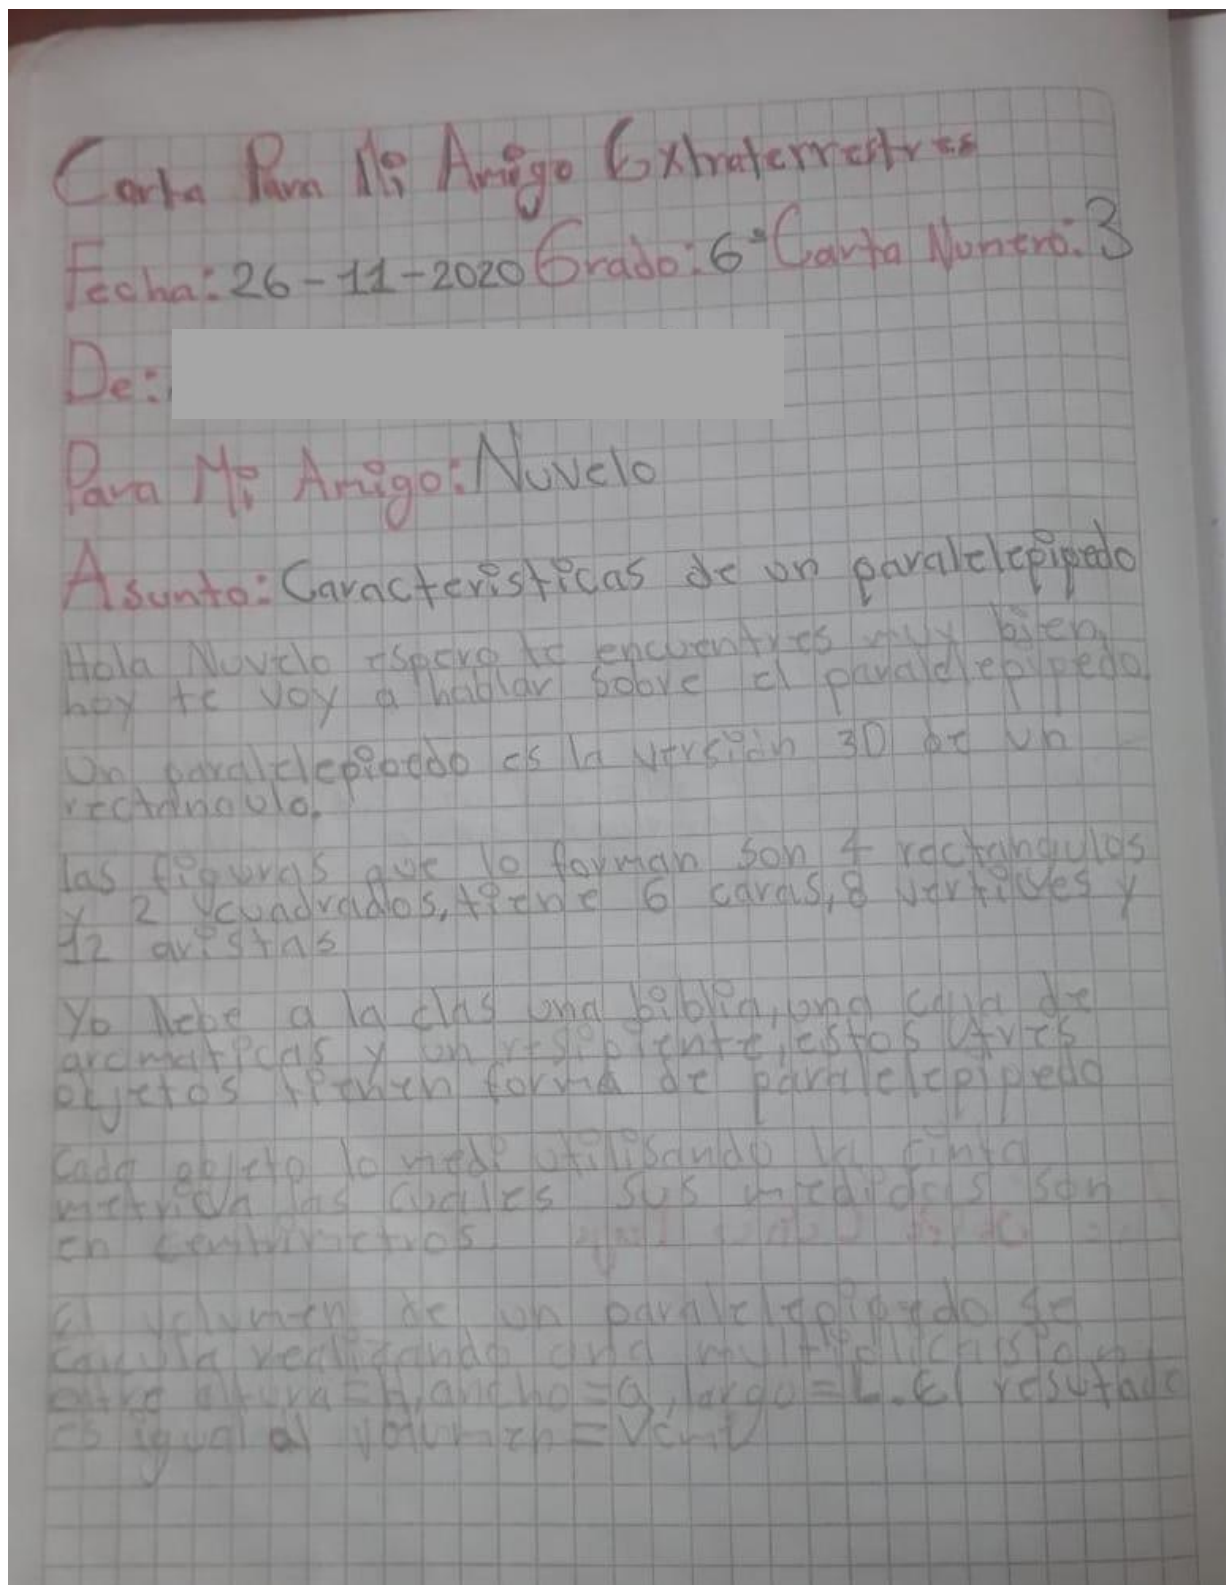 Carta Para Mi Amigo Extraterrestres
Fecha: 26-11-2020 Grado: 6° Carta Numero: 3
De:
Para Mi Amigo: Nuvelo
Asunto: Caracteristicas de un paralelepipedo
Hola Nuvelo espero te encuentres muy bien,
hoy te voy a hablar sobre el paralelepipedo
Un paralelepipedo es la versión 3D de un
rectángulo.
las figuras que lo forman son 4 rectangulos
y 2 cuadrados, tiene 6 caras, 8 vertices y
12 aristas
Yo llebe a la clas una biblia, una caja de
aromaticas y un resipiente, estos tres
objetos tienen forma de paralelepipedo
Cada objeto lo medi utilisando la cinta
metrica las cuales sus medidas son
en
El volumen de un paralelepipedo se
calcula realizando una
entre altura=H, ancho=a, largo=L. El resultado
es igual al volumen=